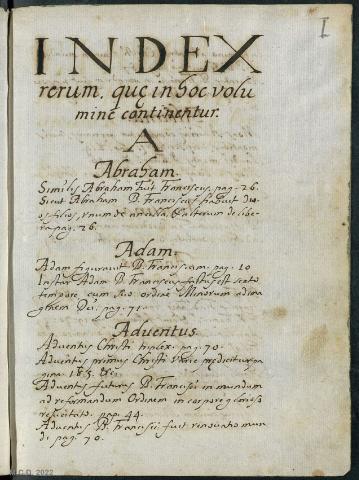 I
INDEX
rerum, quę in hoc volu
mine continentur.
A
Abraham.
Similis Abraham fuit Franciscus, pag. 26.
Sicut Abraham B. Franciscus habuit du
os filios, vnum de ancilla, & alterum de libe
ra, pag. 26.
Adam.
Adam figurauit B. Franciscum, pag. 10
Instar Adam B. Franciscus factus est sexto
tempore, cum suo ordine Minorum ad ima
ginem Dei, pag. 71.
Aduentus.
Aduentus Christi triplex. pag. 70.
Aduentus primus Christi varie prediciturpa
gina. 185.
Aduentus futurus B. Francisci in mundum
ad reformandum Ordinem in corpore glorioso
resuscitato. pag. 44.
Aduentus B. Francisci fuit renouatio mun
di pag. 70.
C.O. 2022